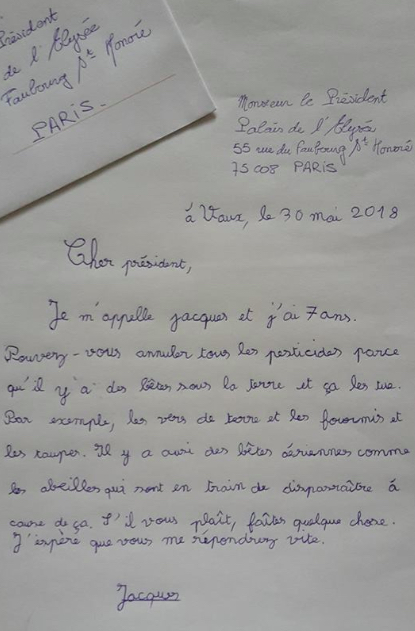 Président
de l'Elysée
Faubourg St Honoré
PARIS.
Monsieur le Président
Palais de l'Elysée
55 rue du Faubourg St Honoré
75008 PARIS
à Vaux, le 30 mai 2018
Cher président,
Je m'appelle jacques et j'ai 7 ans.
Pouvez-vous annuler tous les pesticides parce
qu'il y'a des bêtes sous la terre et ça les tue.
Par exemple, les vers de terre et les fourmis et
les taupes. Il y a aussi des bêtes aériennes comme
les abeilles qui sont en train de disparraître à
cause de ça. S'il vous plaît, faîtes quelque chose.
J'espère que vous me répondrez vite.
Jacques